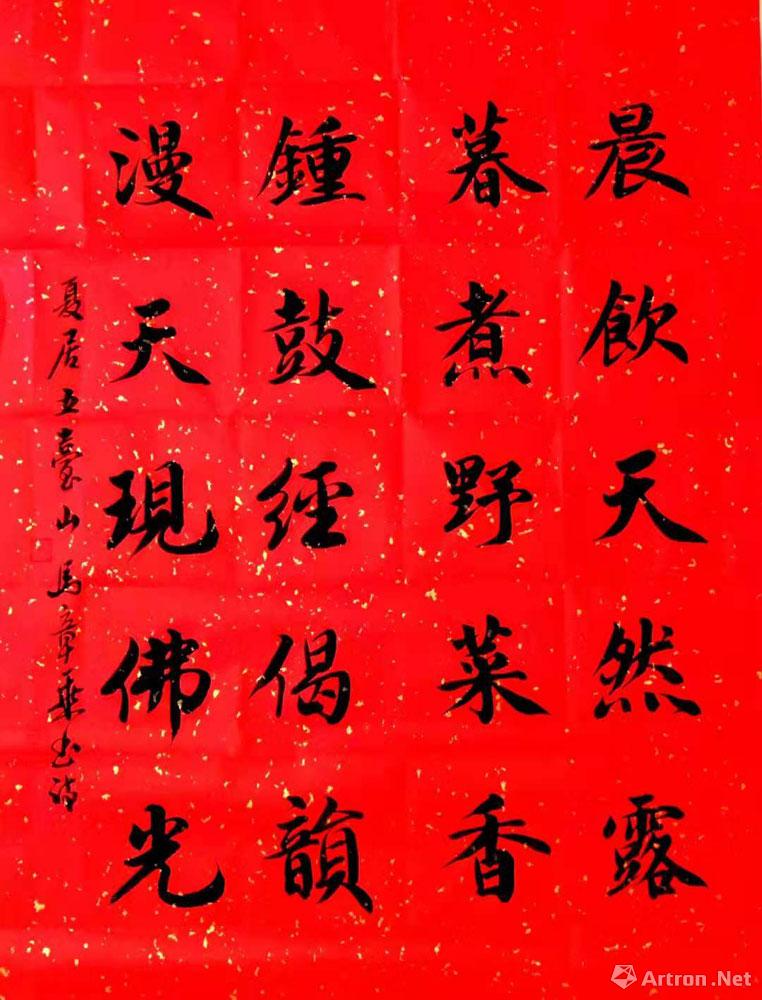 晨飲天然露
暮煮野菜香
鍾鼓經偈韻
漫天現佛光
夏居五臺山馬章乘书诗
Artron.Net